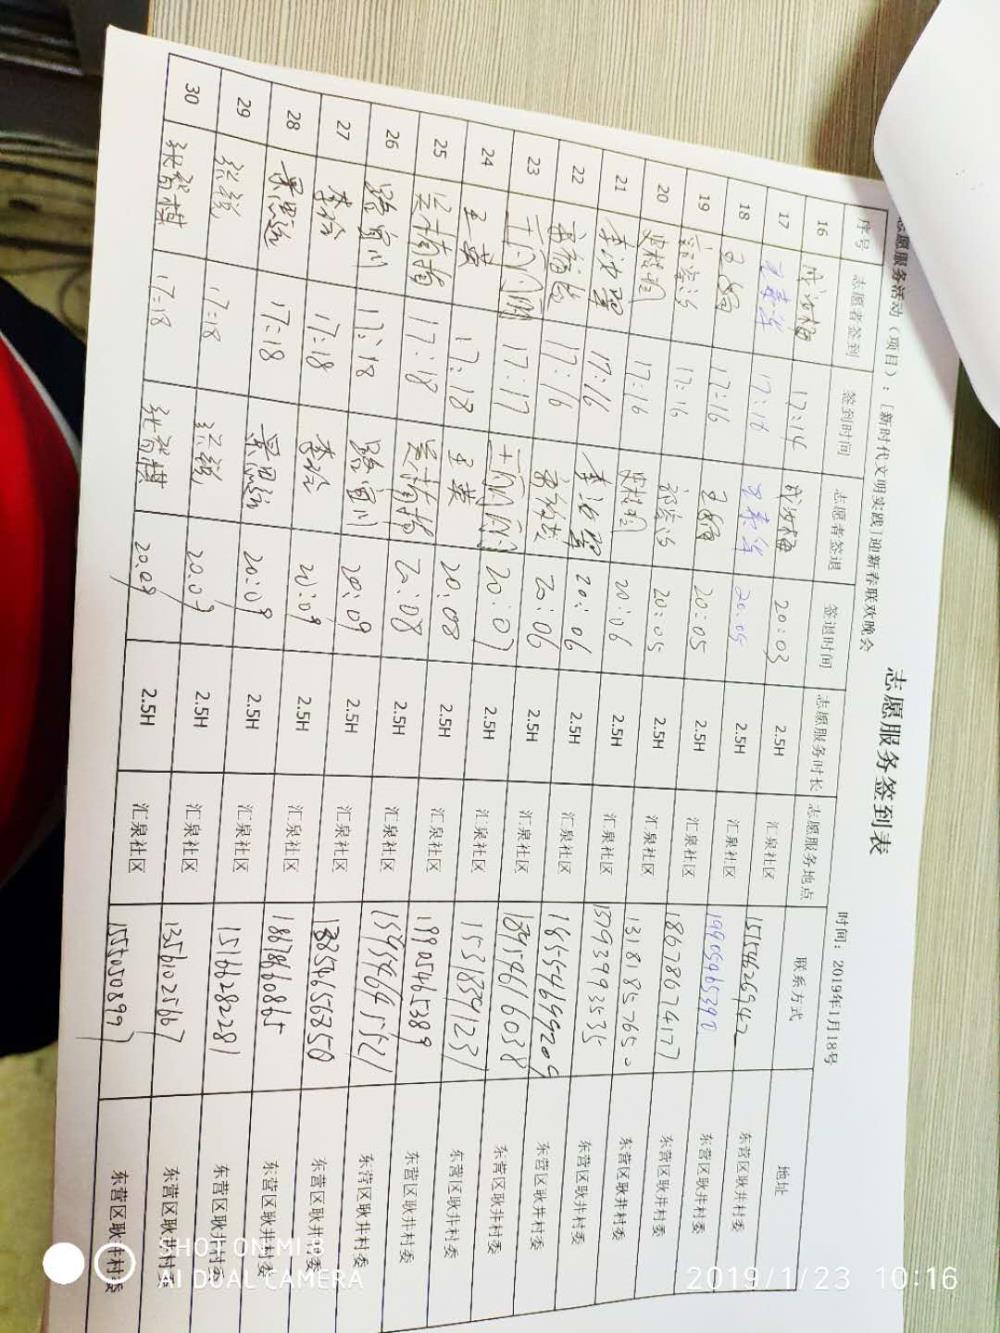 志愿服务签到表
志愿服务活动（项目）：[新时代文明实践]迎新春联欢晚会 时间：2019年1月18号
序号 志愿者签到 签到时间 志愿者签退 签退时间 志愿服务时长 志愿服务地点 联系方式 地址
16 成汝梅 17:14 成汝梅 20:03 2.5H 汇泉社区 15154626942 东营区耿井村委
17 王素华 17:16 王素华 20:05 2.5H 汇泉社区 19905465390 东营区耿井村委
18 王娟 17:16 王娟 20:05 2.5H 汇泉社区 18678674177 东营区耿井村委
19 17:16 20:05 2.5H 汇泉社区 13181857650 东营区耿井村委
20 17:16 20:06 2.5H 汇泉社区 东营区耿井村委
21 17:16 20:06 2.5H 汇泉社区 18654699209 东营区耿井村委
22 17:16 20:06 2.5H 汇泉社区 东营区耿井村委
23 王丽丽 17:17 王丽丽 20:07 2.5H 汇泉社区 15318391231 东营区耿井村委
24 王英 17:18 王英 20:08 2.5H 汇泉社区 19905465389 东营区耿井村委
25 17:18 20:08 2.5H 汇泉社区 东营区耿井村委
26 路宜川 17:18 路宜川 20:09 2.5H 汇泉社区 13854656850 东营区耿井村委
27 李俭 17:18 李俭 20:09 2.5H 汇泉社区 18678660865 东营区耿井村委
28 景思懿 17:18 景思懿 20:09 2.5H 汇泉社区 15166282281 东营区耿井村委
29 张锐 17:18 张锐 20:09 2.5H 汇泉社区 13561025667 东营区耿井村委
30 张智棋 17:18 张智棋 20:09 2.5H 汇泉社区 15550508997 东营区耿井村委
SHOT ON MI 8
AI DUAL CAMERA
2019/1/23 10:16